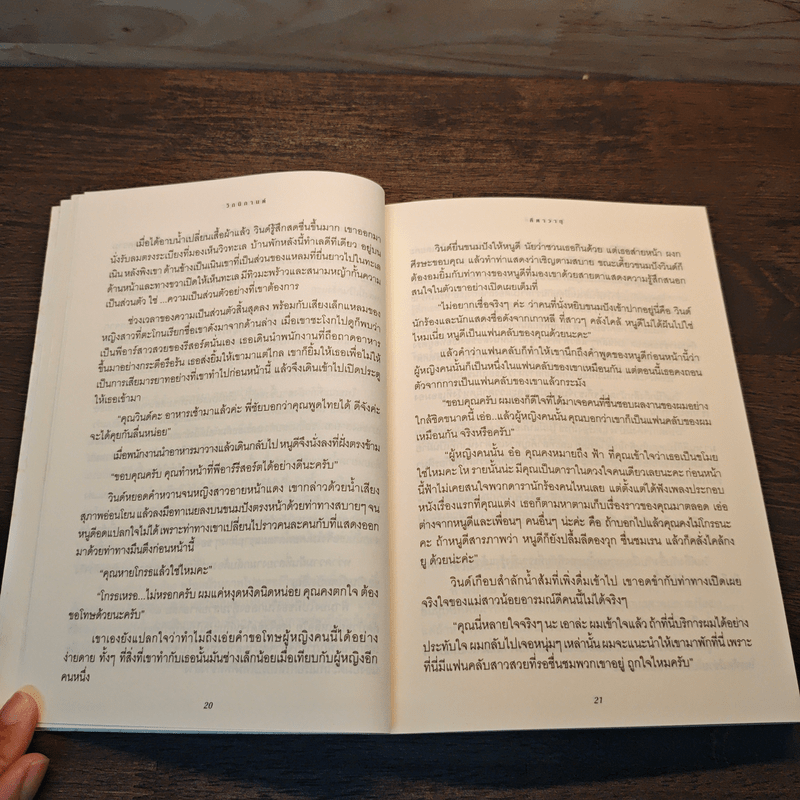 วิกนิกานต์
เมื่อได้อาบน้ำเปลี่ยนเสื้อผ้าแล้ว วินด์รู้สึกสดชื่นขึ้นมาก เขาออกมา
นั่งรับลมตรงระเบียงที่มองเห็นวิวทะเล บ้านพักหลังนี้ทำเลดีทีเดียว อยู่บน
เนิน หลังพิงเขา ด้านข้างเป็นเนินเขาที่เป็นส่วนของแหลมที่ยื่นยาวไปในทะเล
ด้านหน้าและทางขวาเปิดให้เห็นทะเล มีทิวมะพร้าวและสนามหญ้ากั้นความ
เป็นส่วนตัว ใช่ ...ความเป็นส่วนตัวอย่างที่เขาต้องการ
ช่วงเวลาของความเป็นส่วนตัวสิ้นสุดลง พร้อมกับเสียงเล็กแหลมของ
หญิงสาวที่ตะโกนเรียกชื่อเขาดังมาจากด้านล่าง เมื่อเขาชะโงกไปดูก็พบว่า
เป็นพีอาร์สาวสวยของรีสอร์ตนั่นเอง เธอเดินนำพนักงานที่ถือถาดอาหาร
ขึ้นมาอย่างกระตือรือร้น เธอส่งยิ้มให้เขามาแต่ไกล เขาก็ยิ้มให้เธอเพื่อไม่ให้
เป็นการเสียมารยาทอย่างที่เขาทำไปก่อนหน้านี้ แล้วจึงเดินเข้าไปเปิดประตู
ให้เธอเข้ามา
“คุณวินด์คะ อาหารเช้ามาแล้วค่ะ พี่ชัยบอกว่าคุณพูดไทยได้ ดีจังค่ะ
จะได้คุยกันลื่นหน่อย”
เมื่อพนักงานนำอาหารมาวางแล้วเดินกลับไป หนูดีจึงนั่งลงที่ฝั่งตรงข้าม
“ขอบคุณครับ คุณทำหน้าที่พีอาร์รีสอร์ตได้อย่างดีนะครับ”
วินด์หยอดคำหวานจนหญิงสาวอายหน้าแดง เขากล่าวด้วยน้ำเสียง
สุภาพอ่อนโยน แล้วลงมือทาเนยลงบนขนมปังตรงหน้าด้วยท่าทางสบายๆ จน
หนูดีอดแปลกใจไม่ได้ เพราะท่าทางเขาเปลี่ยนไปราวคนละคนกับที่แสดงออก
มาด้วยท่าทางมึนตึงก่อนหน้านี้
“คุณหายโกรธแล้วใช่ไหมคะ”
“โกรธเหรอ...ไม่หรอกครับ ผมแค่หงุดหงิดนิดหน่อย คุณคงตกใจ ต้อง
ขอโทษด้วยนะครับ”
เขาเองยังแปลกใจว่าทำไมถึงเอ่ยคำขอโทษผู้หญิงคนนี้ได้อย่าง
ง่ายดาย ทั้งๆ ที่สิ่งที่เขาทำกับเธอนั้นมันช่างเล็กน้อยเมื่อเทียบกับผู้หญิงอีก
คนหนึ่ง
20
วินด์ยื่นขนมปังให้หนูดี นัยว่าชวนเธอกินด้วย แต่เธอส่ายหน้า ผงก
ศีรษะขอบคุณ แล้วทำท่าแสดงว่าเชิญตามสบาย ขณะเคี้ยวขนมปังวินด์ก็
ต้องอมยิ้มกับท่าทางของหนูดีที่มองเขาด้วยสายตาแสดงความรู้สึกสนอก
สนใจในตัวเขาอย่างเปิดเผยเต็มที่
“ไม่อยากเชื่อจริงๆ ค่ะ ว่าคนที่นั่งหยิบขนมปังเข้าปากอยู่นี่คือ วินด์
นักร้องและนักแสดงชื่อดังจากเกาหลี ที่สาวๆ คลั่งไคล้ หนูดีไม่ได้ฝันไปใช่
ไหมเนี่ย หนูดีเป็นแฟนคลับของคุณด้วยนะคะ”
แล้วคำว่าแฟนคลับก็ทำให้เขานึกถึงคำพูดของหนูดีก่อนหน้านี้ว่า
ผู้หญิงคนนั้นก็เป็นหนึ่งในแฟนคลับของเขาเหมือนกัน แต่ตอนนี้เธอคงถอน
ตัวจากการเป็นแฟนคลับของเขาแล้วกระมัง
“ขอบคุณครับ ผมเองก็ดีใจที่ได้มาเจอคนที่ชื่นชอบผลงานของผมอย่าง
ใกล้ชิดขนาดนี้ เอ่อ...แล้วผู้หญิงคนนั้น คุณบอกว่าเขาก็เป็นแฟนคลับของผม
เหมือนกัน จริงหรือครับ”
“ผู้หญิงคนนั้น อ๋อ คุณคงหมายถึง ฟ้า ที่คุณเข้าใจว่าเธอเป็นขโมย
ใช่ไหมคะ โห รายนั้นน่ะ มีคุณเป็นดาราในดวงใจคนเดียวเลยนะคะ ก่อนหน้า
นี้ฟ้าไม่เคยสนใจพวกดารานักร้องคนไหนเลย แต่ตั้งแต่ได้ฟังเพลงประกอบ
หนังเรื่องแรกที่คุณแต่ง เธอก็ตามหาตามเก็บเรื่องราวของคุณมาตลอด เธอ
ต่างจากหนูดีและเพื่อนๆ คนอื่นๆ น่ะค่ะ คือ ถ้าบอกไปแล้วคุณคงไม่โกรธนะ
คะ ถ้าหนูดีสารภาพว่า หนูดีก็ยังปลื้มลีดองวุก ชื่นชมเรน แล้วก็คลั่งไคล้กง
ยู ด้วยน่ะค่ะ”
วินด์เกือบสำลักน้ำส้มที่เพิ่งดื่มเข้าไป เขาอดขำกับท่าทางเปิดเผย
จริงใจของแม่สาวน้อยอารมณ์ดีคนนี้ไม่ได้จริงๆ
“คุณนี่หลายใจจริงๆ นะ เอาล่ะ ผมเข้าใจแล้ว ถ้าที่นี่บริการผมได้อย่าง
ประทับใจ ผมกลับไปเจอหนุ่มๆ เหล่านั้น ผมจะแนะนำให้เขามาพักที่นี่ เพราะ
ที่นี่มีแฟนคลับสาวสวยที่รอชื่นชมพวกเขาอยู่ ถูกใจไหมครับ”
21